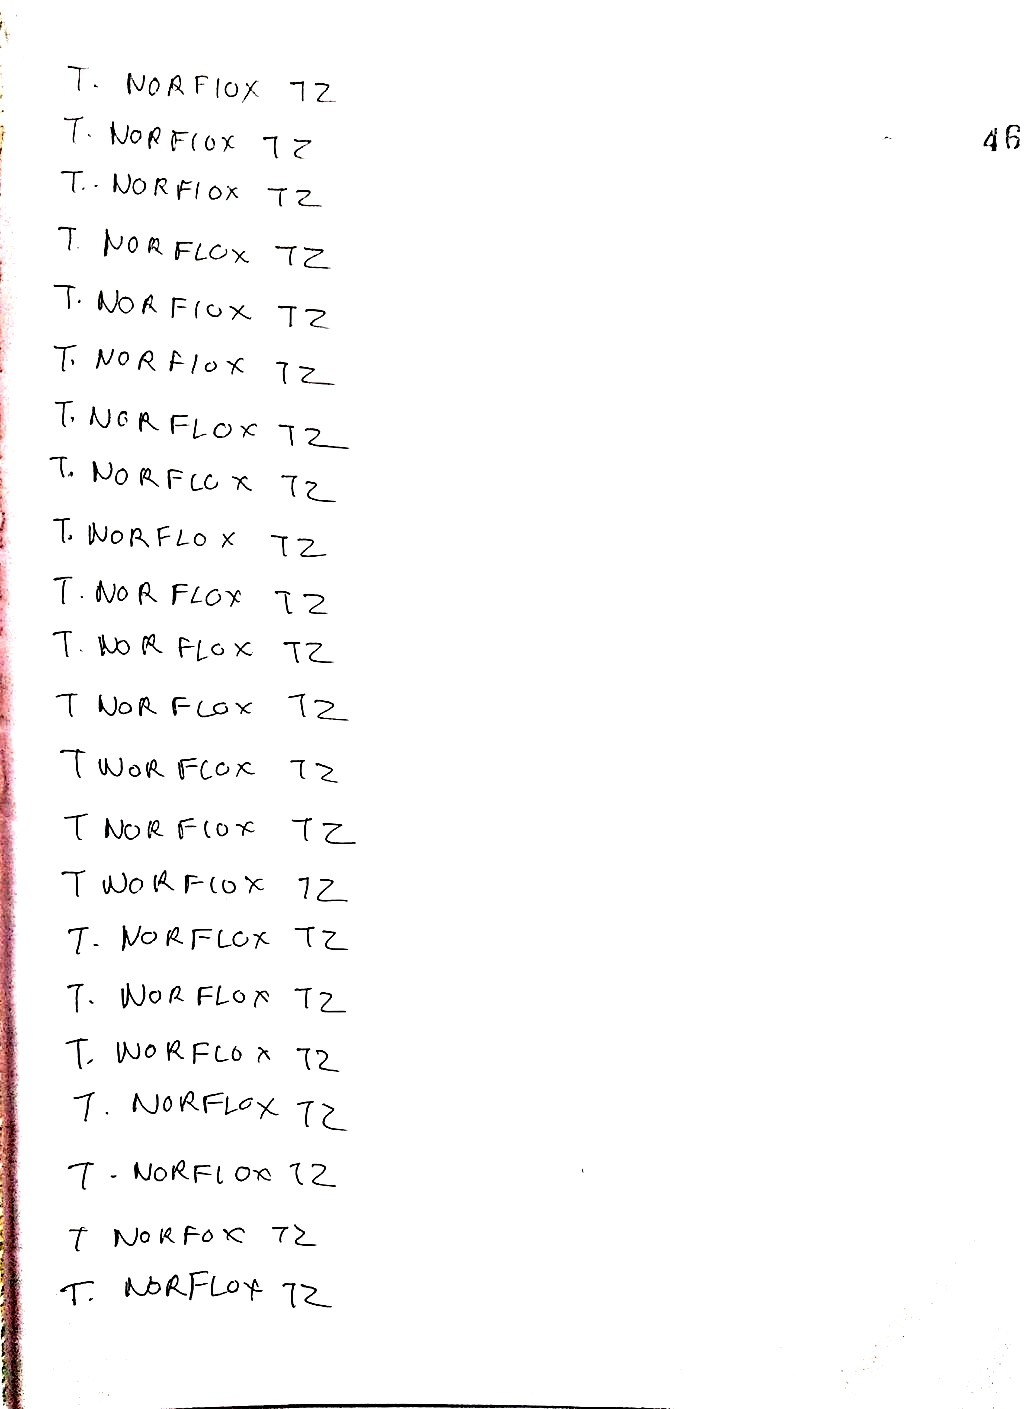 T. NORFLOX TZ
46
T. NORFLOX TZ
T. NORFLOX TZ
T NORFLOX TZ
T. NORFLOX TZ
T. NORFLOX TZ
T. NORFLOX TZ
T. NORFLOX TZ
T. NORFLOX TZ
T. NORFLOX TZ
T. NORFLOX TZ
T NORFLOX TZ
T NORFLOX TZ
T NORFLOX TZ
T NORFLOX TZ
T. NORFLOX TZ
T. NORFLOX TZ
T. NORFLOX TZ
T. NORFLOX TZ
T. NORFLOX TZ
T NORFOX TZ
T. NORFLOX TZ